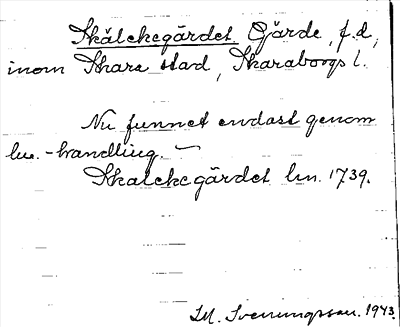 Skålckegärdet Gärde, f.d.,
inom Skara stad, Skaraborgs l.
Nu funnet endast genom
lm.-handling. —
Skalckegärdet lm. 1739.
M. Svenungsson. 1943.